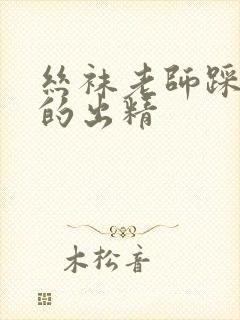 絲袜老師踩
的出精
木松音